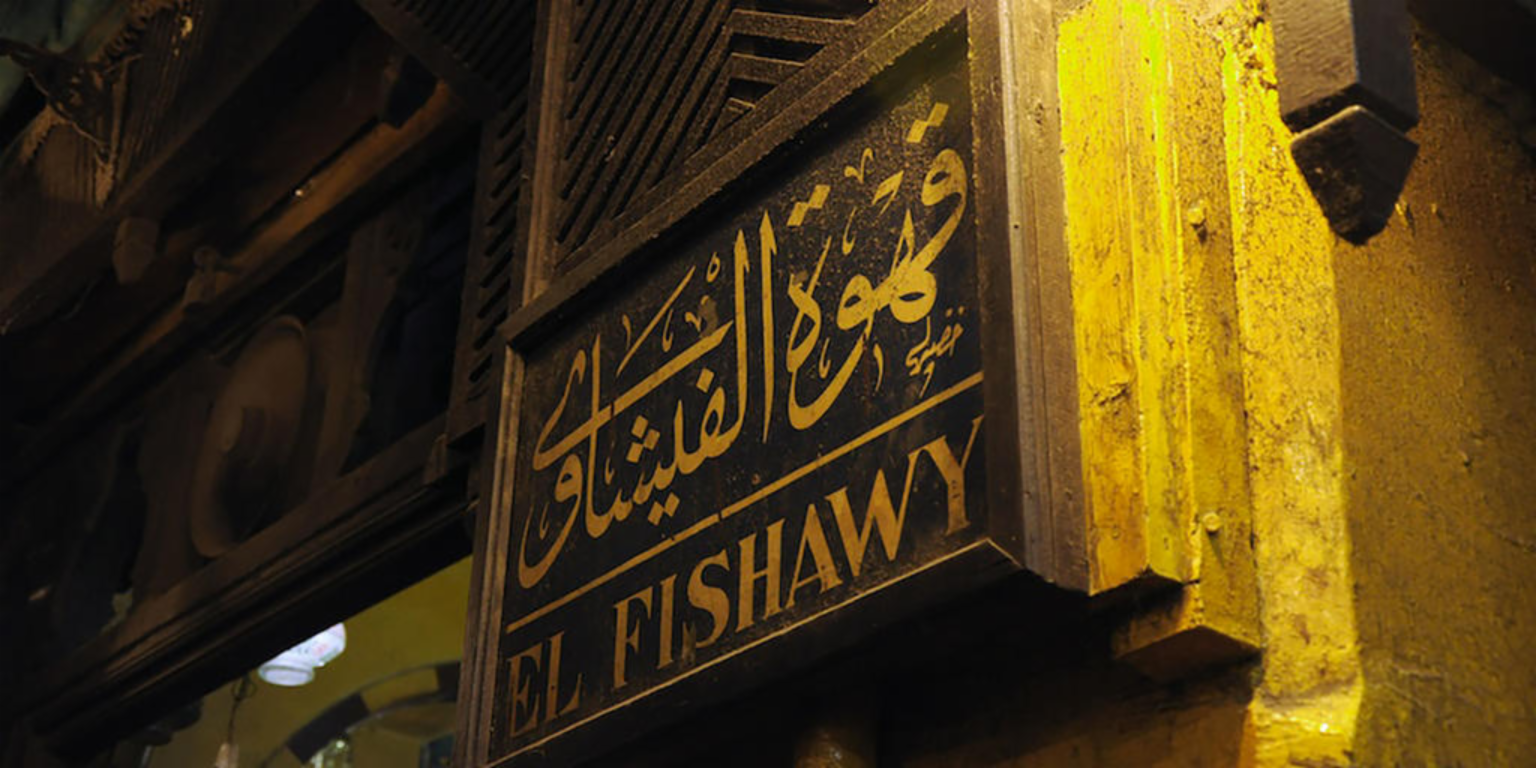 قهوة الفيشاوى
خضير
EL FISHAWY